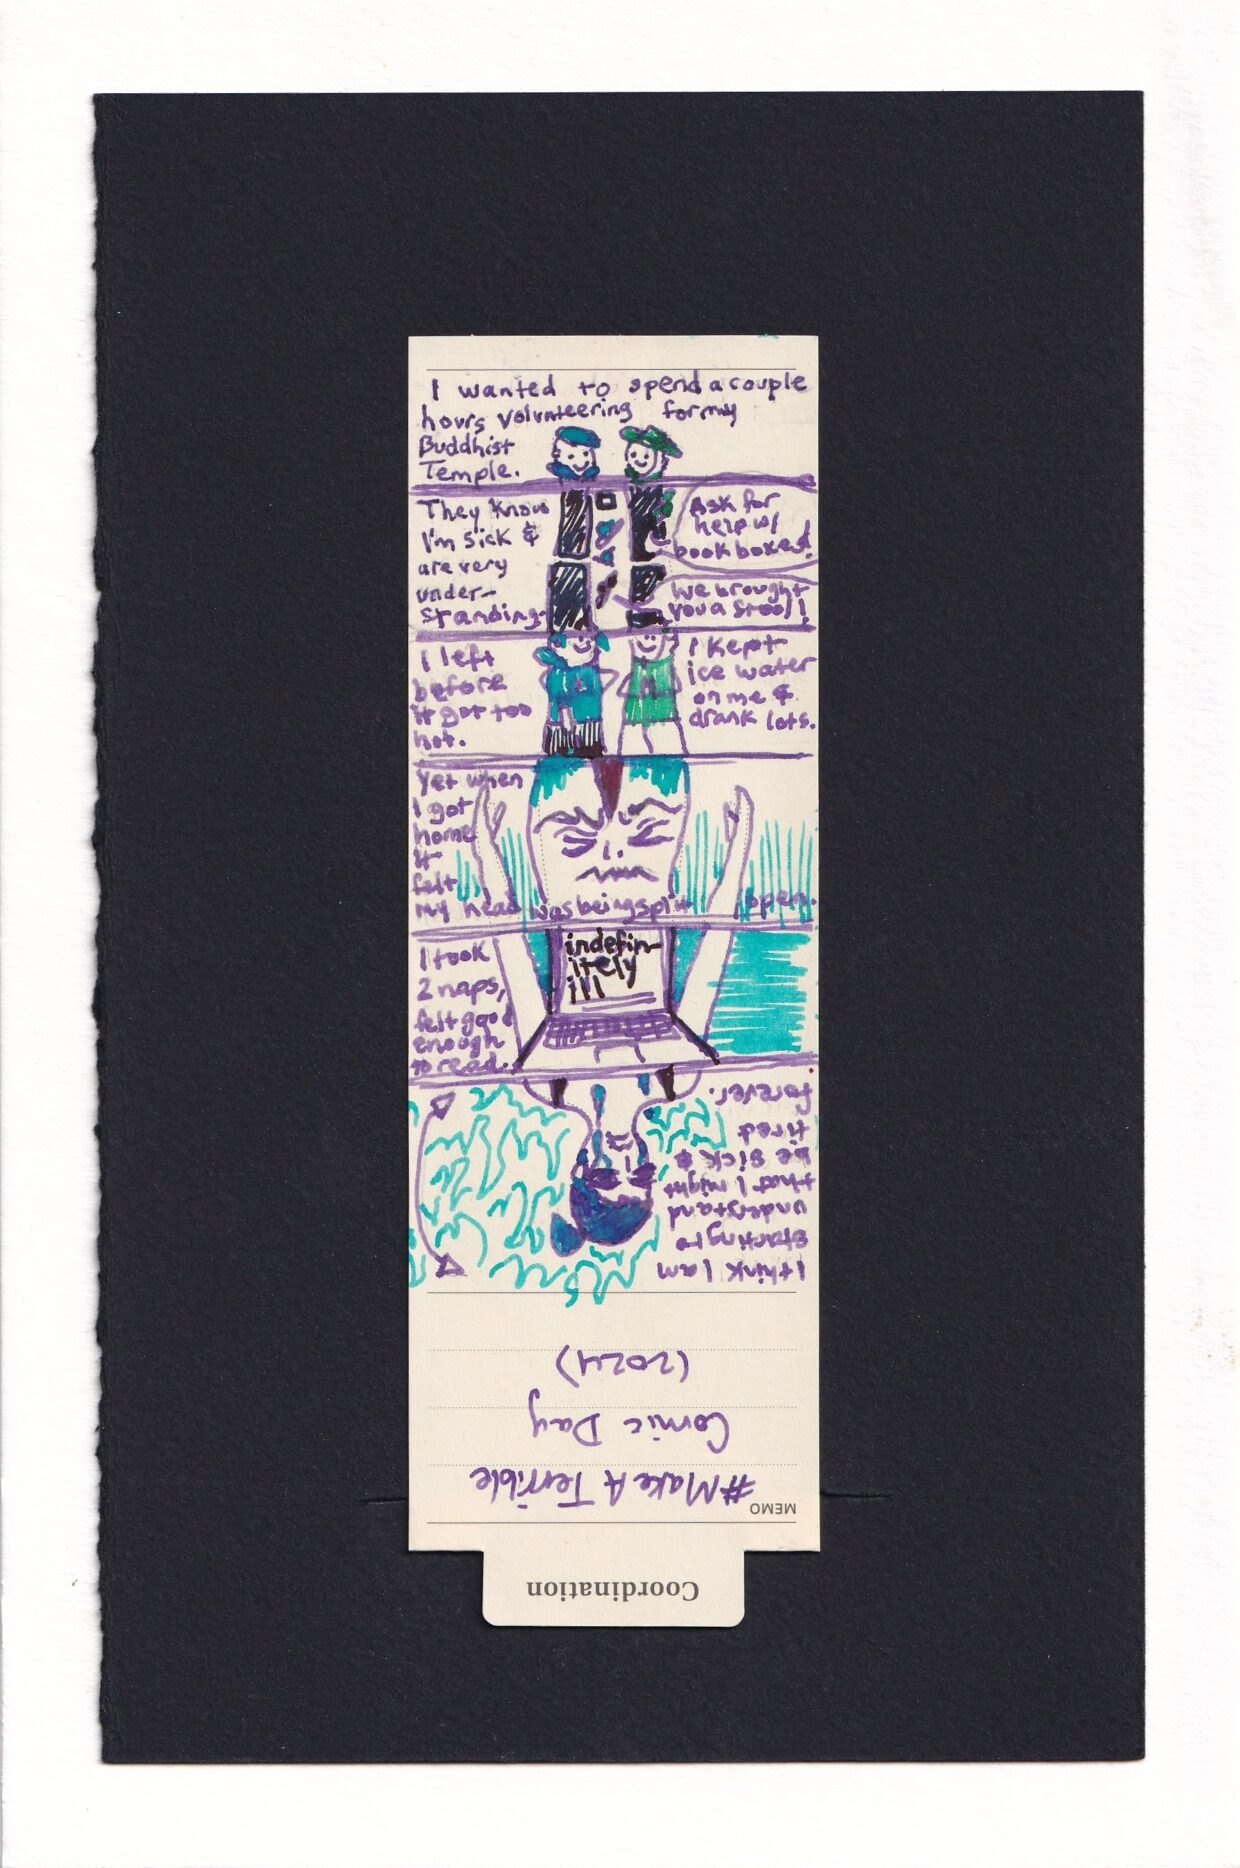 I wanted to spend a couple
hours volunteering for my
Buddhist
Temple.
They know
I'm sick &
are very
under-
standing.
Ask for
help w/
book boxes!
We brought
you a stool!
I left
before
it got too
hot.
I kept
ice water
on me &
drank lots.
Yet when
I got
home
it
felt
my head was being split open.
I took
2 naps,
felt good
enough
to read.
indefin-
itely
ill
I think I am
starting to
understand
that I might
be sick &
tired
forever.
MEMO
#Make A Terrible
Comic Day
(2024)
Coordination